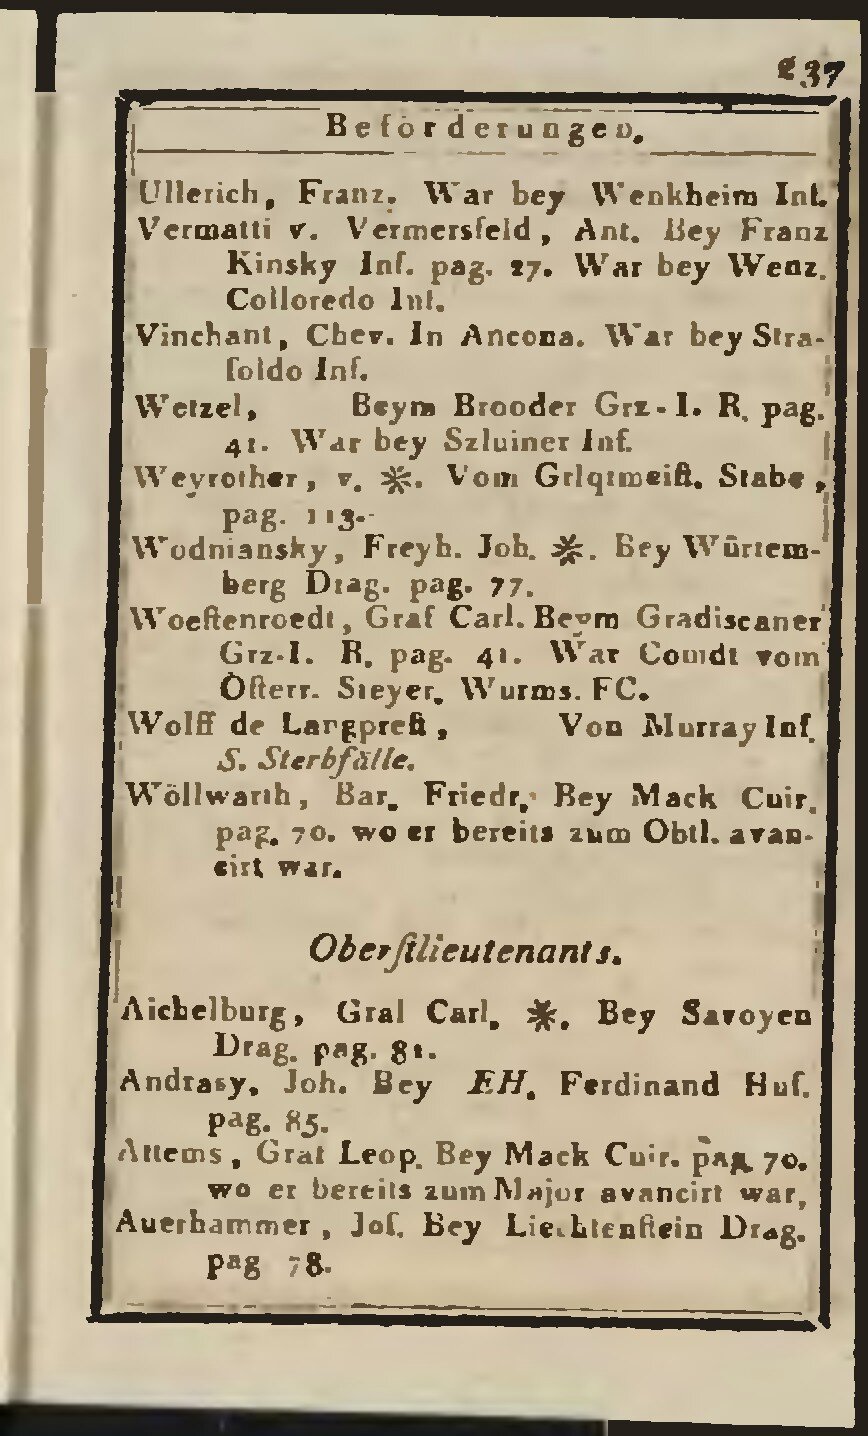 237
Beförderungen.
Ullerich, Franz. War bey Wenkheim Inf.
Vermatti v. Vermersfeld, Ant. Bey Franz
Kinsky Inf. pag. 27. War bey Wenz.
Colloredo Inf.
Vinchant, Chev. In Ancona. War bey Stra-
ſoldo Inf.
Wetzel, Beym Brooder Grz-I. R. pag.
41. War bey Szluiner Inf.
Weyrother, v. ※. Vom Grlqtmeiſt. Stabe,
pag. 113.
Wodniansky, Freyh. Joh. ※. Bey Würtem-
berg Drag. pag. 77.
Woeſtenroedt, Graf Carl. Beym Gradiscaner
Grz-I. R. pag. 41. War Comdt vom
Öſterr. Steyer. Wurms. FC.
Wolff de Largpreſt, Von Murray Inf.
S. Sterbfälle.
Wöllwarth, Bar. Friedr. Bey Mack Cuir.
pag. 70. wo er bereits zum Obtl. avan-
cirt war.
Oberſtlieutenants.
Aichelburg, Graf Carl, ※. Bey Savoyen
Drag. pag. 81.
Andrasy, Joh. Bey EH. Ferdinand Huſ.
pag. 85.
Attems, Graf Leop. Bey Mack Cuir. pag. 70.
wo er bereits zum Major avancirt war,
Auerhammer, Joſ. Bey Liechtenſtein Drag.
pag 78.